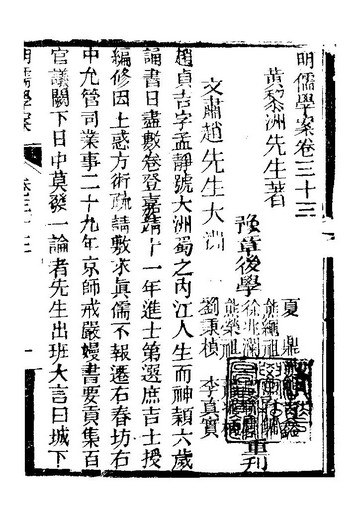 明儒學案卷三十三
黃棃洲先生著
豫章後學
夏鼎
熊繩祖
徐兆瀾
熊榮祖
劉秉楨
李真實
重刊
文肅趙先生大洲
趙貞吉字孟靜號大洲蜀之內江人生而神穎六歲
誦書日盡數卷登嘉靖十一年進士第選庶吉士授
編修因上惑方術疏請敷求眞儒不報遷右春坊右
中允管司業事二十九年京師戒嚴嫚書要貢集百
官議闕下日中莫發一論者先生出班大言曰城下
明儒學案
卷三十三
一